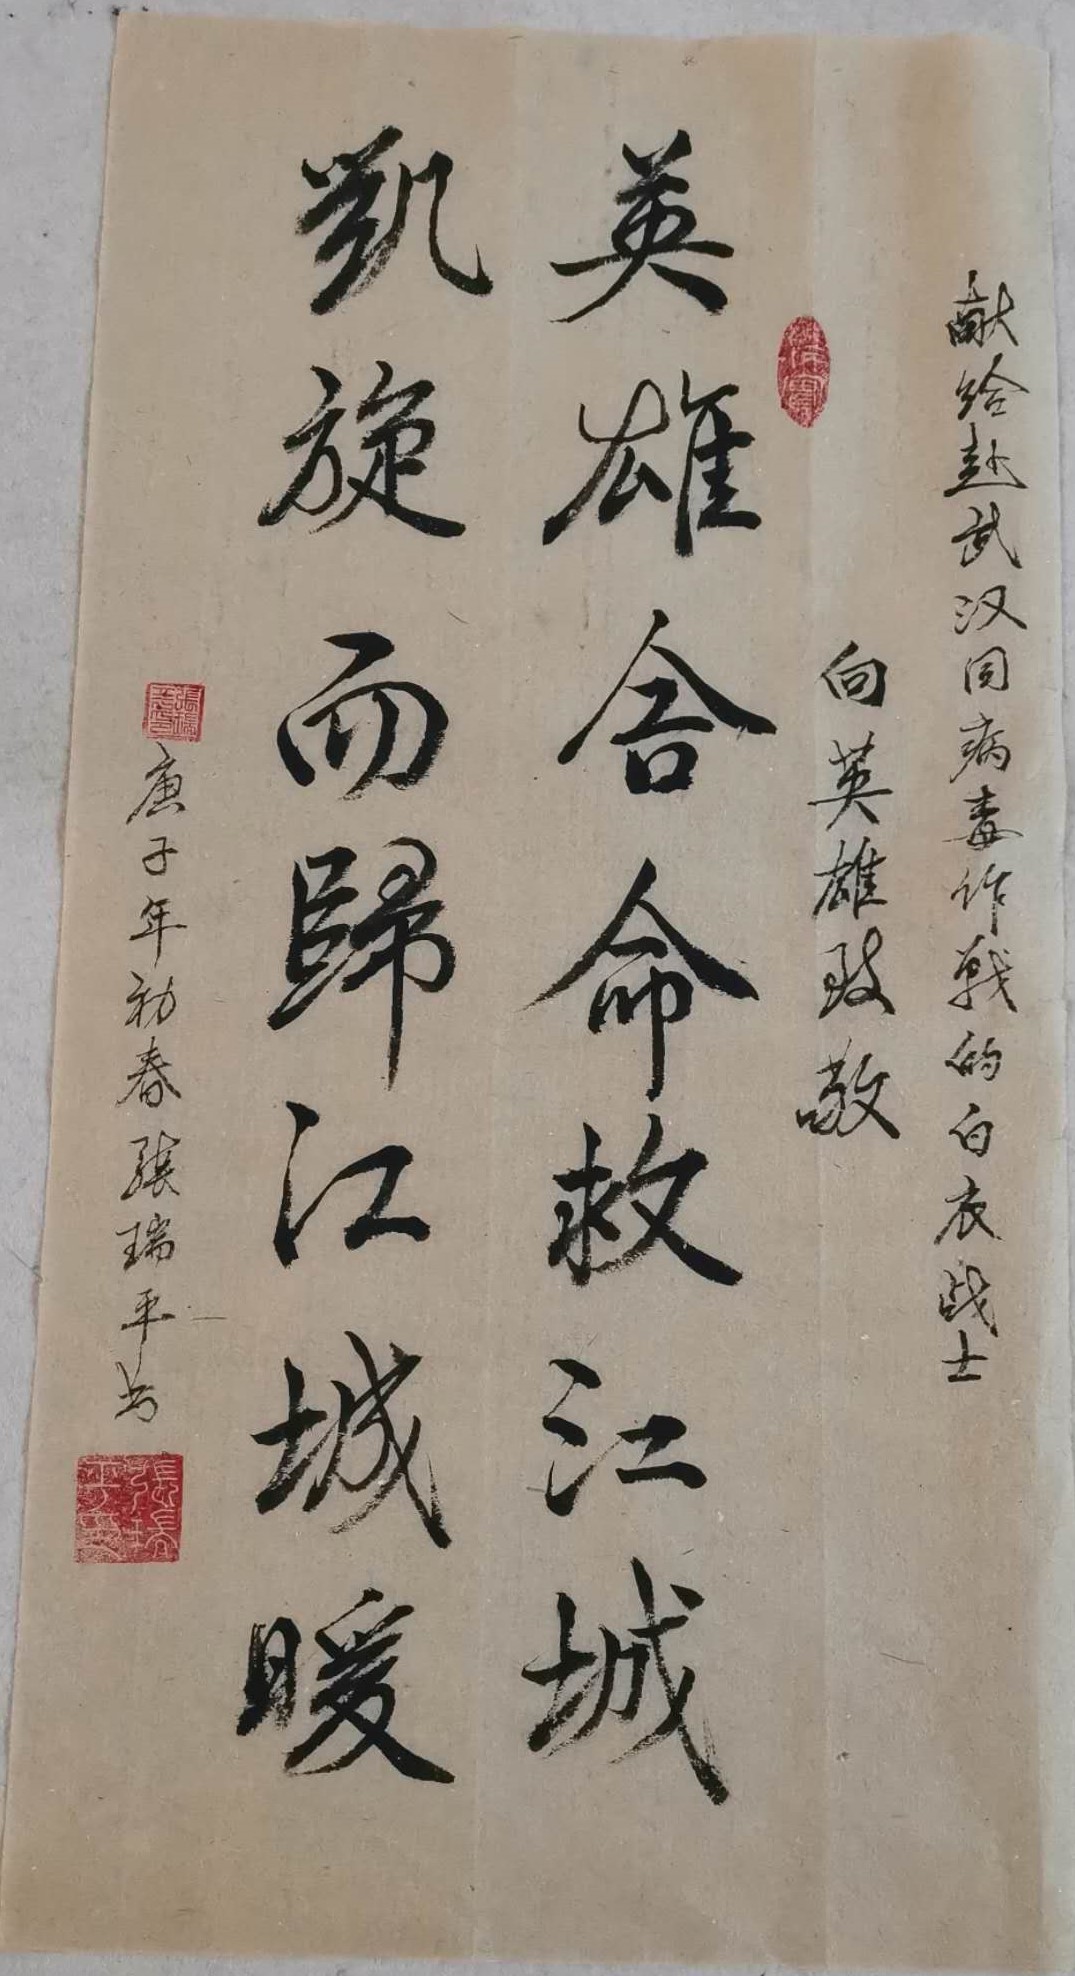 献给赴武汉同病毒作戰的白衣战士
向英雄致敬
英雄舍命救江城
凯旋而歸江城暖
庚子年初春張瑞平书